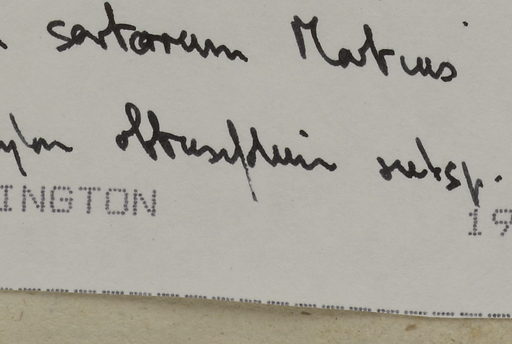 sartorum Martius
obtusifolium subsp.
INGTON 19